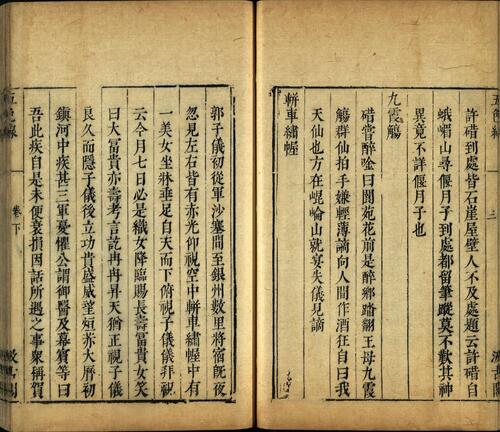 許碏到處皆石崖屋壁人不及處題云許碏自
峨嵋山尋偃月子到處都留筆蹤莫不歎其神
異竟不詳偃月子也
九霞觴
碏嘗醉唫曰閬苑花前是醉鄉踏翻王母九霞
觴群仙拍手嫌輕薄謫向人間作酒狂自曰我
天仙也方在崐崘山就宴失儀見謫
軿車繡幄
郭子儀初從軍沙塞間至銀州數里將宿旣夜
忽見左右皆有赤光仰視空中軿車繡幄中有
一美女坐牀垂足自天而下俯視子儀儀拜視
云今月七日必是織女降臨賜長壽富貴女笑
曰大富貴亦壽考言訖冉冉昇天猶正視子儀
良久而隱子儀後立功貴盛威望烜赤大曆初
鎮河中疾甚三軍憂懼公謂御醫及幕賓等曰
吾此疾自是未便衰損因話所遇之事衆稱賀
卷下